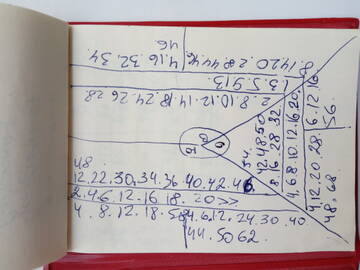 8.14.20.28.44.46
46
4.16.32.34
1.3.5.9.13.
2.8.10.12.14.18.24.26.28
48
12.22.30.34.36.40.42.46.
2.4.6.12.16.18.20
4.8.12.18.58
4.6.12.24.30.40
44.50.62
54.
42.48.50
8.16.28.32
4.6.8.10.12.16.20.
4.12.20.28.6.12.16
56.
48.68